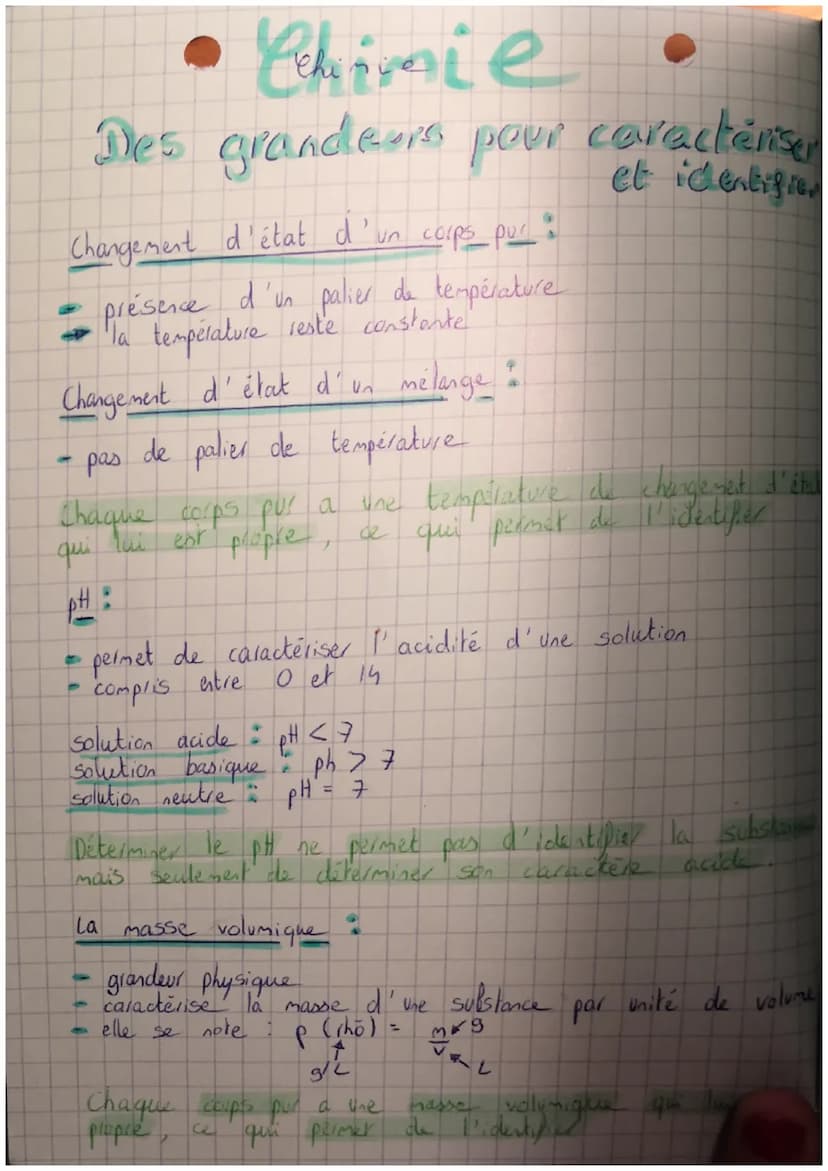 Chimie
Chimie
Des grandeurs pour caractériser
et identifier
Changement d'état d'un corps pur :
- présence d'un palier de température
→ la température reste constante
Changement d'état d'un mélange :
- pas de palier de température
Chaque corps pur a une température de changement d'état
qui lui est propre, ce qui permet de l'identifier
pH :
- permet de caractériser l'acidité d'une solution
- compris entre 0 et 14
solution acide : pH < 7
solution basique : ph > 7
solution neutre : pH = 7
Déterminer le pH ne permet pas d'identifier la substance
mais seulement de déterminer son caractère acide.
La masse volumique :
- grandeur physique
- caractérise la masse d'une substance par unité de volume
- elle se note : ρ (rhō) = m/v
g
g/L
L
Chaque corps pur a une masse volumique qui lui
propre, ce qui permet de l'identifier